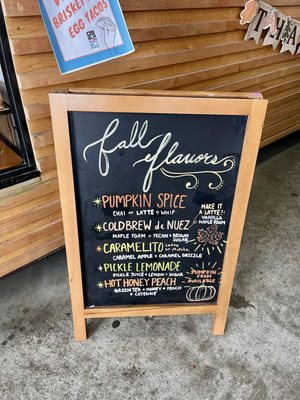 BRISKET
EGG TACOS
THA
Fall Flavors
PUMPKIN SPICE
CHAI OR LATTE + WHIP
COLDBREW de NUEZ
MAPLE FOAM + PECAN + BROWN
SUGAR
CARAMELITO
CARAMEL APPLE + CARAMEL DRIZZLE
PICKLE LEMONADE
PICKLE JUICE + LEMON + SUGAR
HOT HONEY PEACH
GREEN TEA + HONEY + PEACH
+ CAYENNE
MAKE IT
A LATTE!!
VANILLA
MAPLE FOAM
PUMPKIN
FOAM
AVAILABLE